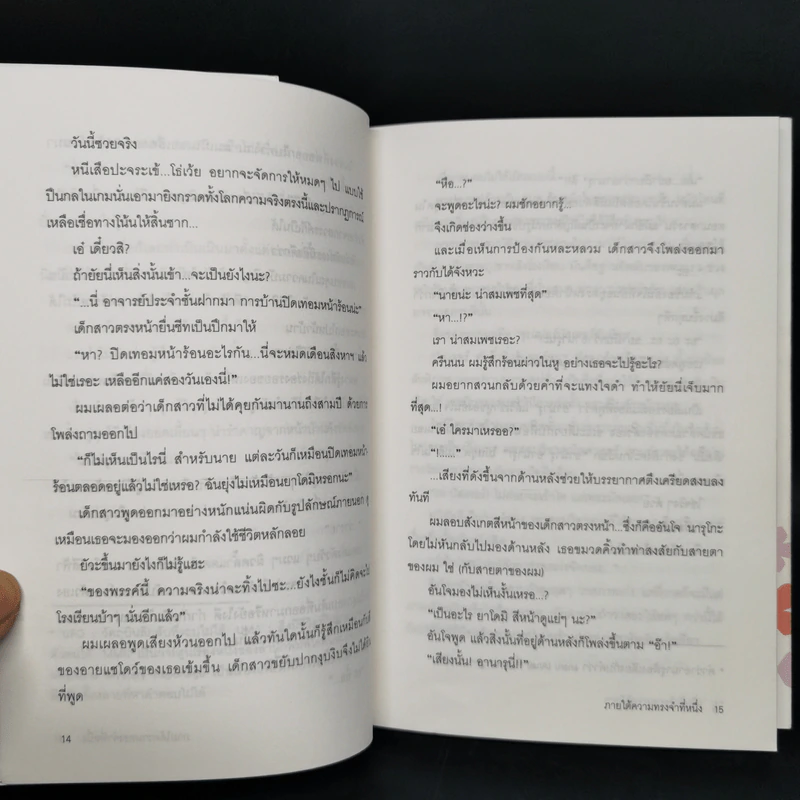 วันนี้ซวยจริง
หนีเสือปะจระเข้...โธ่เว้ย อยากจะจัดการให้หมดๆ ไป แบบใช้
ปืนกลในเกมนั่นเอามายิงกราดทั้งโลกความจริงตรงนี้และปรากฏการณ์
เหลือเชื่อทางโน้นให้สิ้นซาก...
เอ๋ เดี๋ยวสิ?
ถ้ายัยนี่เห็นสิ่งนั้นเข้า...จะเป็นยังไงนะ?
“...นี่ อาจารย์ประจำชั้นฝากมา การบ้านปิดเทอมหน้าร้อนน่ะ”
เด็กสาวตรงหน้ายื่นชีทเป็นปึกมาให้
“หา? ปิดเทอมหน้าร้อนอะไรกัน...นี่จะหมดเดือนสิงหาฯ แล้ว
ไม่ใช่เรอะ เหลืออีกแค่สองวันเองนี่!”
ผมเผลอต่อว่าเด็กสาวที่ไม่ได้คุยกันมานานถึงสามปี ด้วยการ
โพล่งถามออกไป
“ก็ไม่เห็นเป็นไรนี่ สำหรับนาย แต่ละวันก็เหมือนปิดเทอมหน้า
ร้อนตลอดอยู่แล้วไม่ใช่เหรอ? ฉันยุ่งไม่เหมือนยาโดมิหรอกนะ”
เด็กสาวพูดออกมาอย่างหนักแน่นผิดกับรูปลักษณ์ภายนอก ดู
เหมือนเธอจะมองออกว่าผมกำลังใช้ชีวิตหลักลอย
ยัวะขึ้นมายังไงก็ไม่รู้แฮะ
“ของพรรค์นี้ ความจริงน่าจะทิ้งไปซะ...ยังไงชั้นก็ไม่คิดจะไป
โรงเรียนบ้าๆ นั่นอีกแล้ว”
ผมเผลอพูดเสียงห้วนออกไป แล้วทันใดนั้นก็รู้สึกเหมือนกับสี
ของอายแชโดว์ของเธอเข้มขึ้น เด็กสาวขยับปากงุบงิบจึงไม่ได้ยิน
ที่พูด
14
“หือ...?”
จะพูดอะไรน่ะ? ผมชักอยากรู้...
จึงเกิดช่องว่างขึ้น
และเมื่อเห็นการป้องกันหละหลวม เด็กสาวจึงโพล่งออกมา
ราวกับได้จังหวะ
“นายน่ะ น่าสมเพชที่สุด”
“หา...!?”
เรา น่าสมเพชเรอะ?
ครืนนน ผมรู้สึกร้อนผ่าวในหู อย่างเธอจะไปรู้อะไร?
ผมอยากสวนกลับด้วยคำที่จะแทงใจดำ ทำให้ยัยนี่เจ็บมาก
ที่สุด...!
“เอ๋ ใครมาเหรออ?”
“!......”
...เสียงที่ดังขึ้นจากด้านหลังช่วยให้บรรยากาศตึงเครียดสงบลง
ทันที
ผมลอบสังเกตสีหน้าของเด็กสาวตรงหน้า...ซึ่งก็คืออันโจ นารุโกะ
โดยไม่หันกลับไปมองด้านหลัง เธอขมวดคิ้วทำท่าสงสัยกับสายตา
ของผม ใช่ (กับสายตาของผม)
อันโจมองไม่เห็นงั้นเหรอ...?
“เป็นอะไร ยาโดมิ สีหน้าดูแย่ๆ นะ?”
อันโจพูด แล้วสิ่งนั้นที่อยู่ด้านหลังก็โพล่งขึ้นตาม “อ๊า!”
“เสียงนั้น! อานารุนี่!!”
ภายใต้ความทรงจำที่หนึ่ง 15